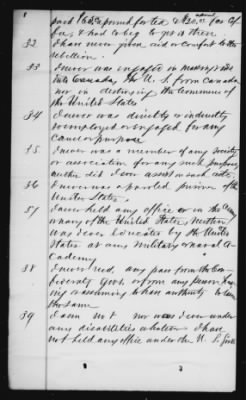 paid 16 cts a pound for tea & $20.00 for Cof
fee, & had to beg to get it then.
32 I have never given aid or comfort to the
rebellion.
33 I never was engaged in making raids
into Canada, the U.S. from Canada
nor in destroying the Commerce of
the United States.
34 I never was directly or indirectly
employed or engaged for any
Cause or purpose.
35 I never was a member of any society
or association for any such purpose
neither did I ever assist in such acts.
36 I never was a paroled prisoner of the
United States.
37 I never held any office or in the Army
or navy of the United States, neither
was I ever Educated by the United
States at any Military or naval A-
cademy
38 I never recd. any pass from the Con-
federate Govt. or from any person hav-
ing or assuming to have authority to issue
the same.
39 I am not nor was I ever under
any disabilities whatever I have
not held any office under the U.S. Govt.